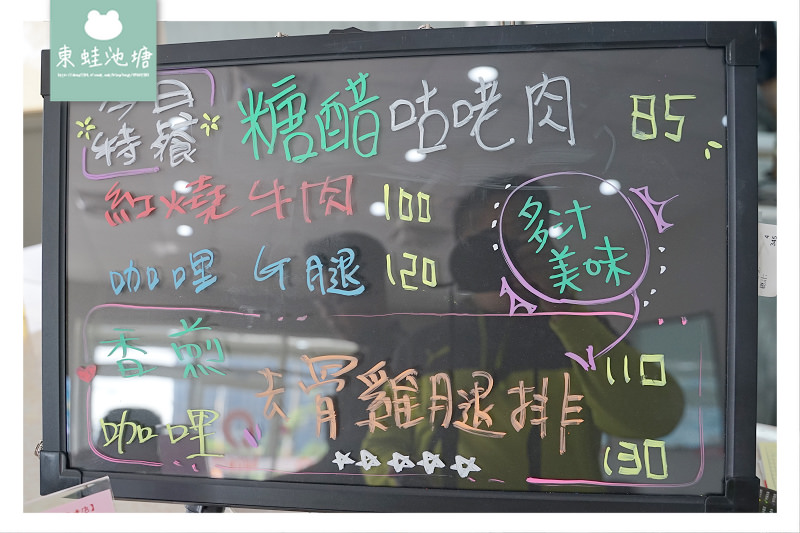 東蛙池塘
今日
特餐
糖醋咕咾肉 85
紅燒牛肉 100
咖哩 G腿 120
多汁
美味
香煎
去骨雞腿排
110
咖哩
130